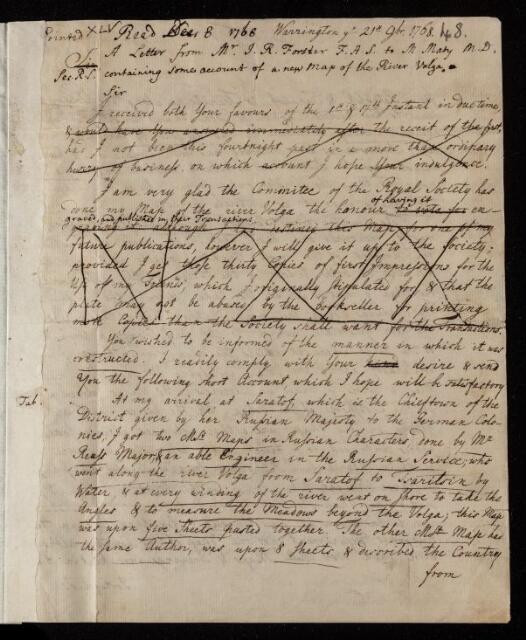 Printed XLV Read Dec. 8 1768 Warrington yᵉ 21ˢᵗ 9br. 1768. 48.
A Letter from Mr. J. R. Forster F. A. S. to M. Maty M. D.
Sec. R. S. containing some account of a new Map of the River Volga.
Sir
I received both Your favours of the 1st & 17th Instant in due time,
& would have You answered immediately after the receit of the first,
had I not been this fourtnight past in a more than ordinary
hurry of business, on which account I hope Your indulgence.
I am very glad the Committee of the Royal Society has
of having it
done my Map of the river Volga the honour to vote for en-
graved, and published in their Transactions.
graving it, although I destiney this Map for one of my
future publications, however I will give it up to the Society:
provided I get those thirty Copies of first Impressions for the
Use of my friends, which I originally stipulated for, & that the
plate may not be abused by the bookseller for printing
more Copies than the Society shall want for the Transactions.
You wished to be informed of the manner in which it was
constructed. I readily comply with Your desire & send
You the following short Account which I hope will be satisfactory
At my arrival at Saratof, which is the Chieftown of the
Tab.
District given by her Russian Majesty to the German Colo-
nies, I got two Mst. Maps in Russian Characters, done by Mr
Reuss Major, & an able Engineer in the Russian Service; who
went along the river Volga from Saratof to Tsaritsin by
Water, & at every winding of the river went on shore to take the
Angles & to measure the Meadows beyond the Volga; this Map
was upon five Sheets pasted together. The other Mst. Map has
the same Author, was upon 8 Sheets, & described the Country
from